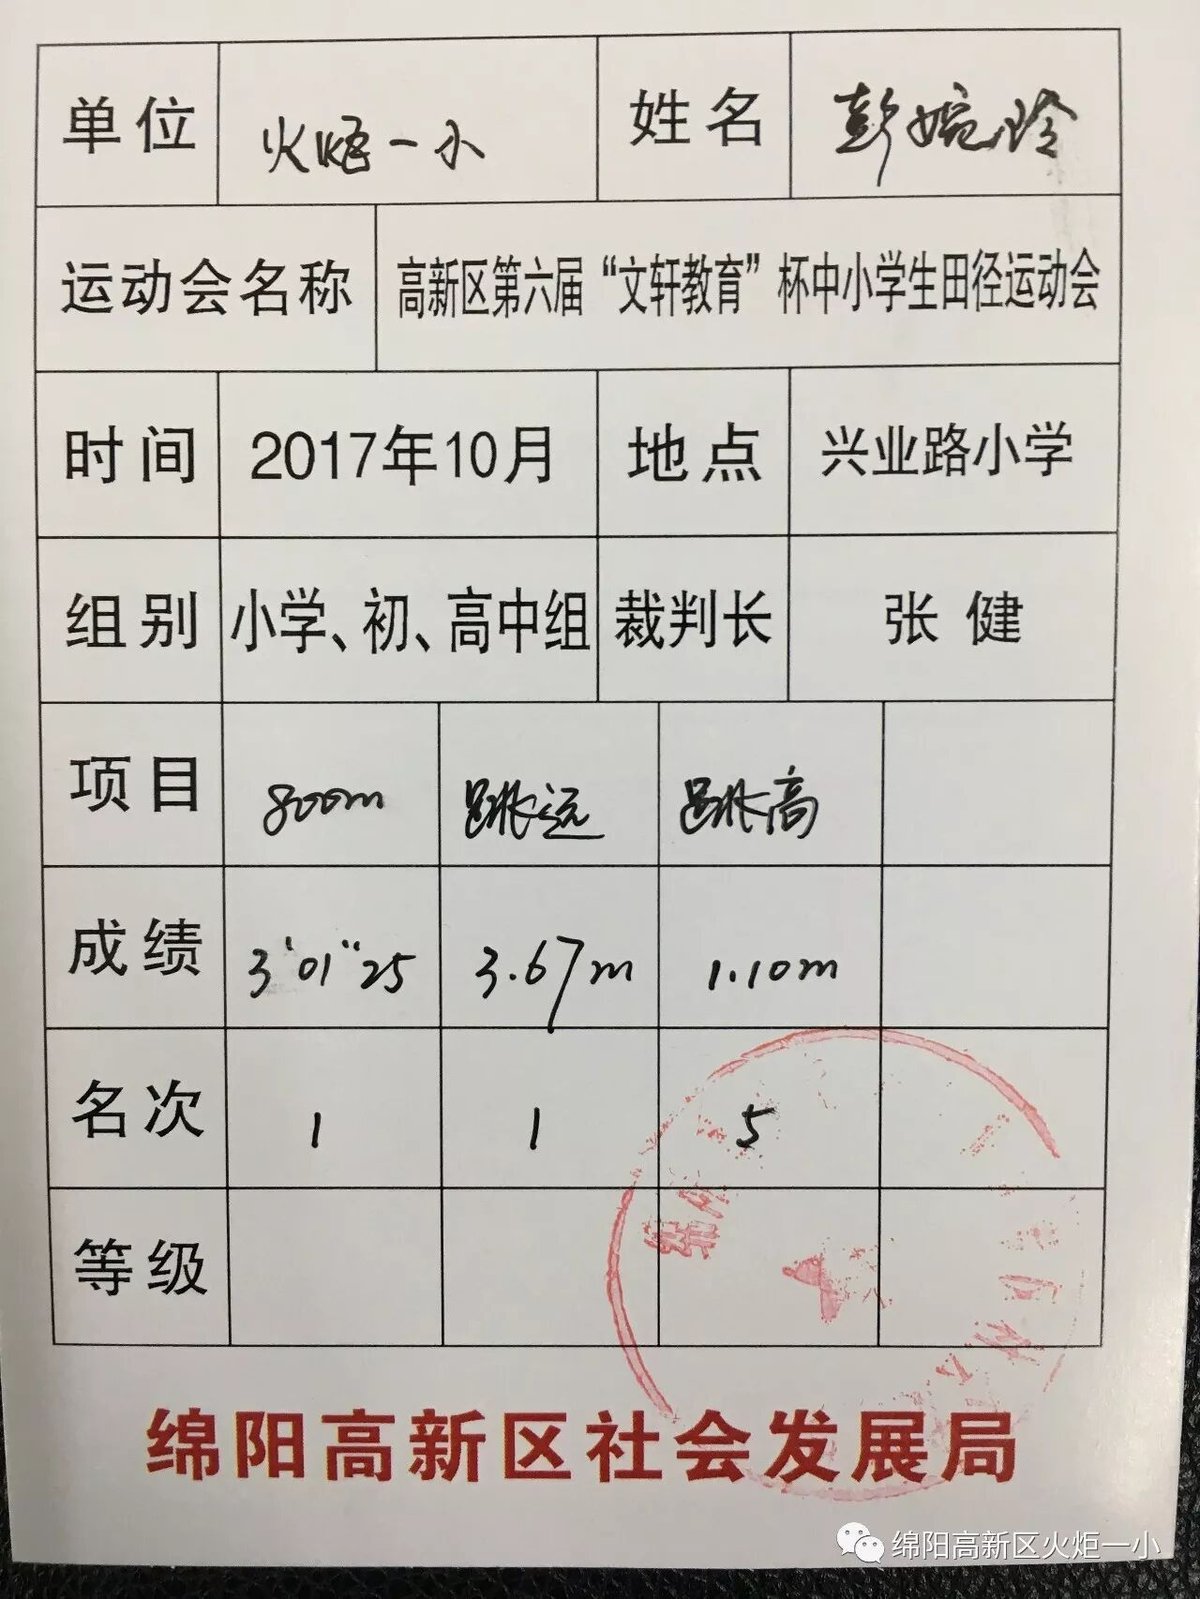 单位 火炬一小 姓名 彭婉玲
运动会名称 高新区第六届“文轩教育”杯中小学生田径运动会
时间 2017年10月 地点 兴业路小学
组别 小学、初、高中组 裁判长 张健
项目 800m 跳远 跳高
成绩 3'01"25 3.67m 1.10m
名次 1 1 5
等级
绵阳高新区社会发展局
绵阳高新区火炬一小